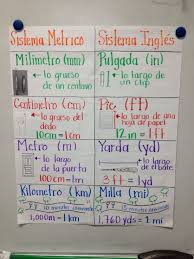 Sistema Metrico
Milimetro (mm)
lo grueso
de un
centavo
Centimetro (cm)
lo grueso
del
dedo
10cm = 1cm
Metro (m)
lo largo
de la puerta
100cm = 1m
Kilometro (km)
10 minutos caminando
1,000m = 1km
Sistema Inglés
Pulgada (in)
lo largo
de un
clip
Pie (ft)
lo largo de una
hoja de papel
12 in = 1ft
Yarda (yd)
lo largo
de
el bate
3ft = 1yd
Milla (mi)
20 minutos caminando
1,760 yds = 1 mi